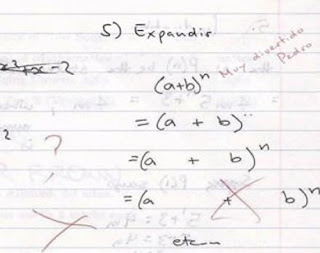 5) Expandir
x²+x-2
(a+b)ⁿ
Muy divertido
Pedro
= (a + b)ⁿ
?
= (a + b)ⁿ
= (a + b)ⁿ
etc...